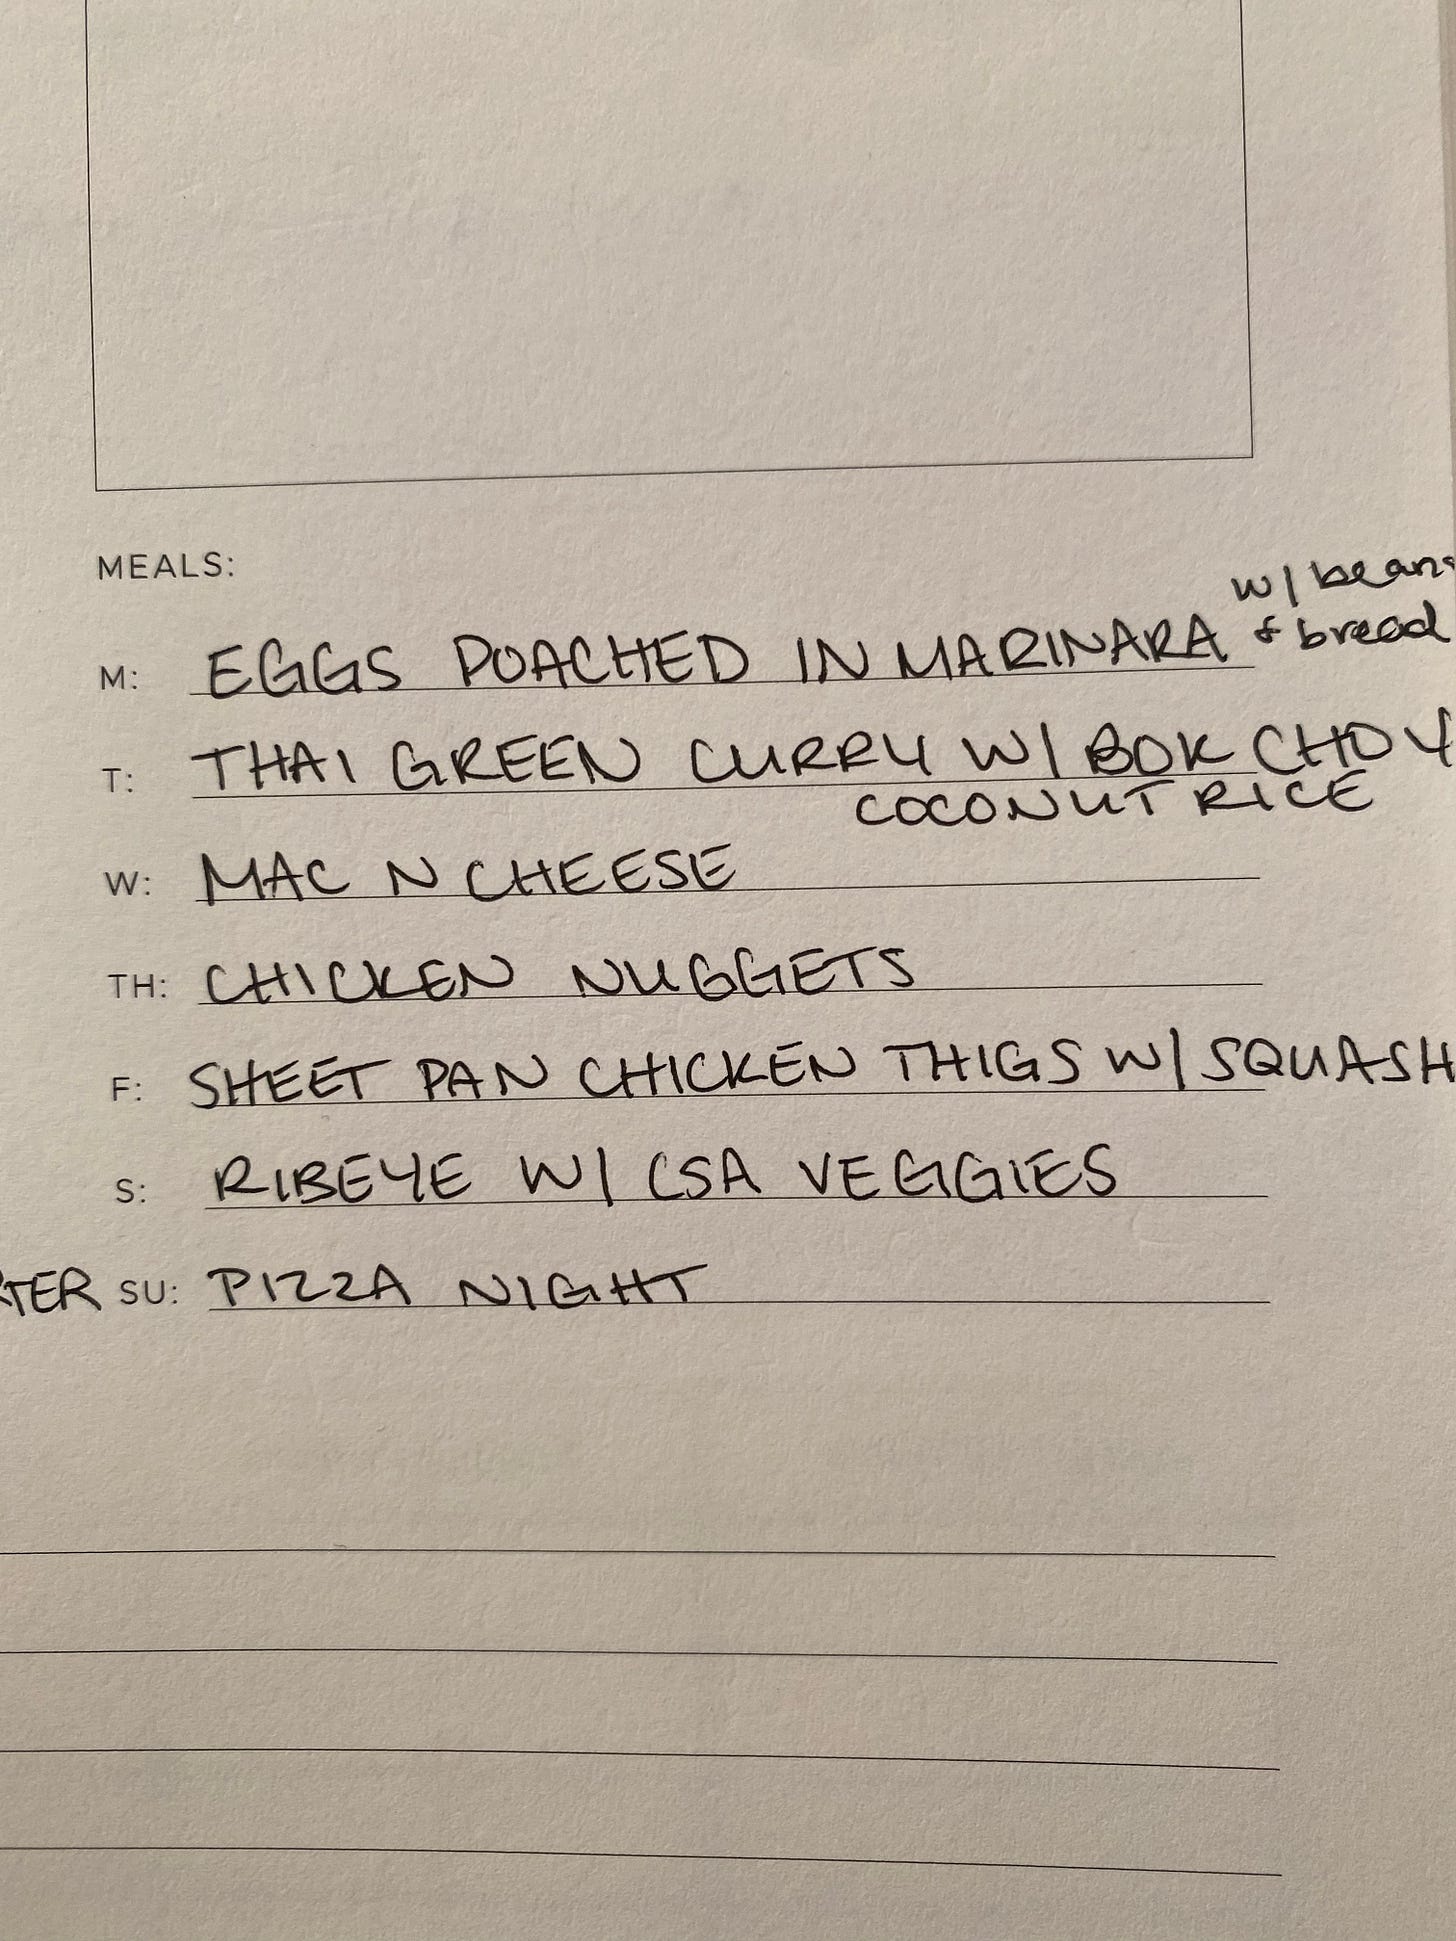 MEALS:
w/ beans
M: EGGS POACHED IN MARINARA & bread
T: THAI GREEN CURRY W/ BOK CHOY
COCONUT RICE
W: MAC N CHEESE
TH: CHICKEN NUGGETS
F: SHEET PAN CHICKEN THIGS W/ SQUASH
S: RIBEYE W/ CSA VEGGIES
SU: PIZZA NIGHT